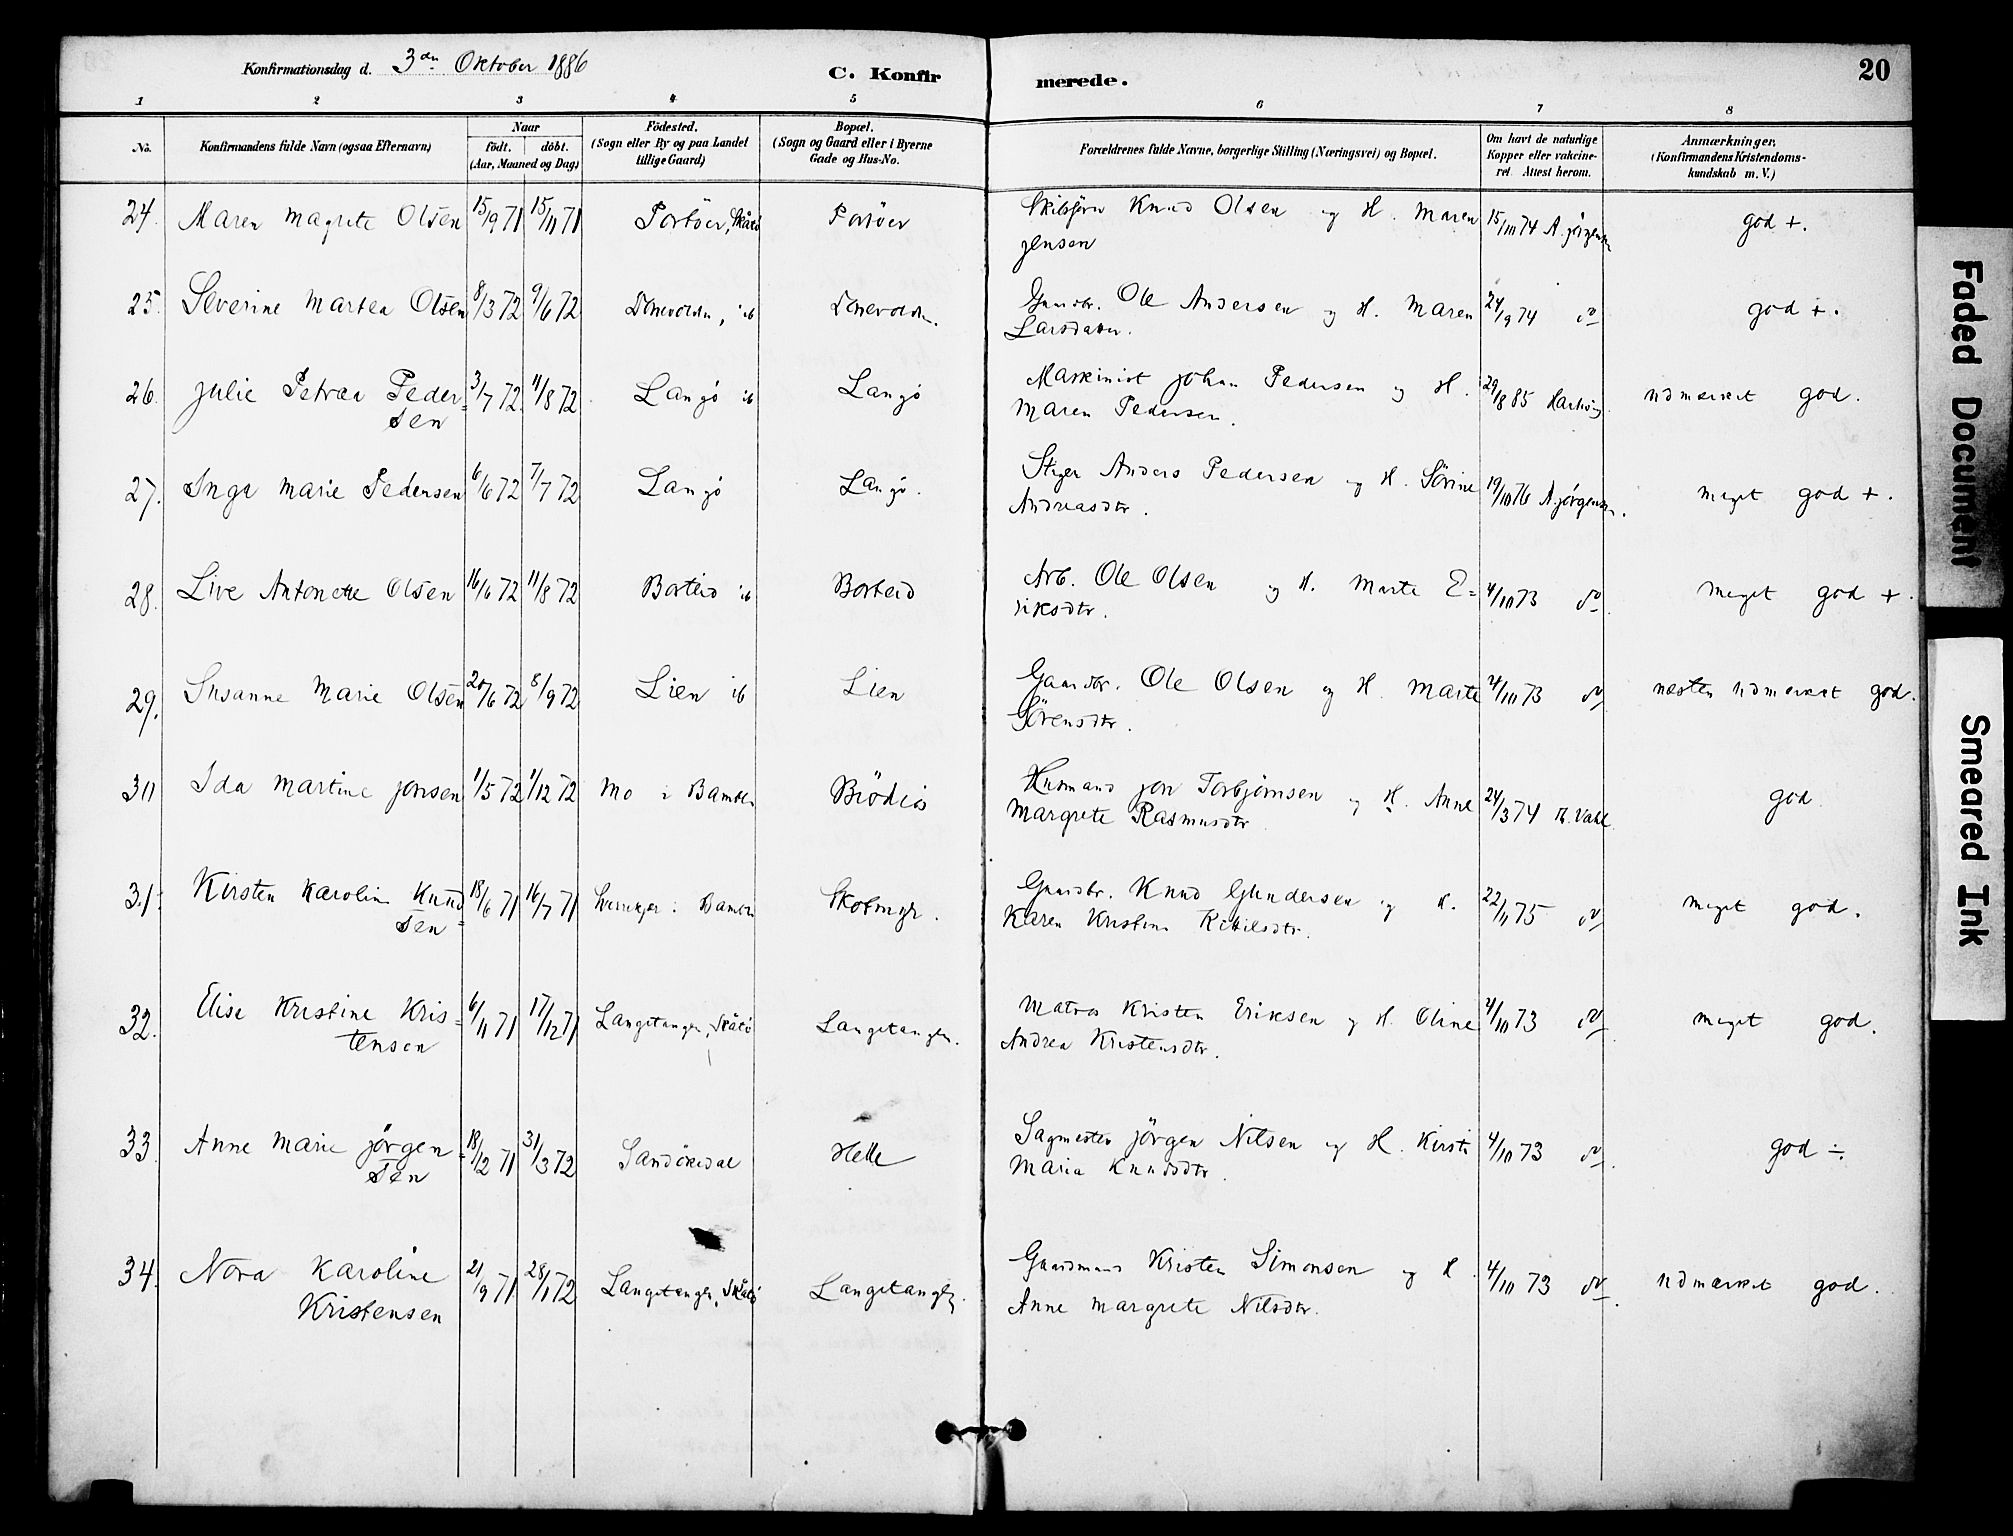 Konfirmationsdag d. 3die Oktober 1886
C. Konfirmerede.
20
1 2 3 4 5 6 7 8
No.
Konfirmandens fulde Navn (ogsaa Efternavn)
Naar
födt. döbt.
(Aar, Maaned og Dag)
Födested.
(Sogn eller By og paa Landet
tillige Gaard)
Bopæl.
(Sogn og Gaard eller i Byerne
Gade og Hus-No.
Forældrenes fulde Navne, borgerlige Stilling (Næringsvei) og Bopæl.
Om havt de naturlige
Kopper eller vakcine-
ret. Attest herom.
Anmærkninger.
(Konfirmandens Kristendoms-
kundskab m. V.)
24. Maren Magrete Olsen 15/9 71 15/11 71 Portöer, Skåtö Portöer Skibsförer Knud Olsen og H. Maren 15/10 74 A. Jörgensen god +.
Jensen
25. Severine Martea Olsen 8/3 72 9/6 72 Donevolden, ib Donevolden. Gaardbr. Ole Andersen og H. Maren 24/9 74 do god +.
Larsdatter.
26. Julie Petrea Peder= 3/7 72 11/8 72 Langö ib Langö Maskinist Johan Pedersen og H. 29/8 85 udmærket god.
sen Maren Pedersen.
27. Inga Marie Pedersen 6/6 72 7/7 72 Langö Langö. Anders Pedersen og H. Sörine 19/10 76 A. Jörgensen. meget god +.
Andreasdtr.
28. Live Antonette Olsen 16/6 72 11/8 72 Borteid ib Borteid Arb. Ole Olsen og H. Marte E= 4/10 73 do meget god +.
riksdtr.
29. Susanne Marie Olsen 20/6 72 8/9 72 Lien ib Lien Gaardbr. Ole Olsen og H. Marte 4/10 73 do næsten udmærket god.
Sörensdtr.
30 Ida Martine Jonsen 1/5 72 1/12 72 Mo i Bamble Husmand Jon Torbjörnsen og H. Anne 24/3 74 Th. Vahl. god
Margrete Rasmusdtr
31. Kirsten Karoline Knud 18/6 71 16/7 71 i Bamble Gaardbr. Knud Gundersen og H. 22/11 75 do meget god.
sen= Karen Kristine Kittilsdtr.
32. Elise Kristine Kris= 6/11 71 17/12 71 Langetangen, Skåtö Langetangen. Matros Kristen Eriksen og H. Oline 4/10 73 do meget god.
tensen Andrea Kristensdtr.
33 Anne Marie Jörgen= 18/12 71 31/3 72 Sandökedal Helle Sagmester Jörgen Nilsen og H. Kirsti 4/10 73 do god ÷.
sen Maria Knudsdtr.
34. Nora Karoline 21/9 71 28/1 72 Langetangen, Skåtö Langetangen. Gaardmand Kristen Simonsen og H. 4/10 73 do. udmærket god.
Kristensen Anne Margrete Nilsdtr.
Faded Document
Smeared Ink